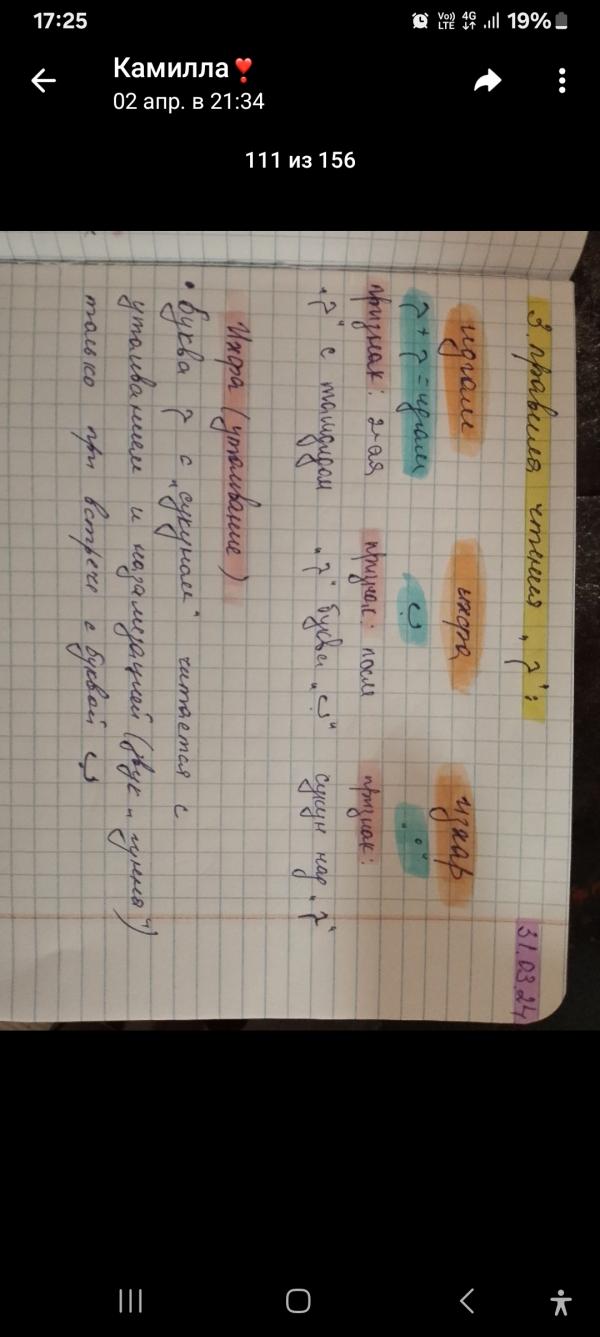 17:25
Vo)) 4G LTE 19%
Камилла
02 апр. в 21:34
111 из 156
31.03.24
3 правила чтения "م":
идгам ихфа изхар
م + م = идгам ب
признак: 2-ая признак: после признак:
"م" с ташдидом "م" буквы "ب" сукун над "م"
Ихфа (утаивание)
• Буква م с "сукуном" читается с
утаиванием и назализацией (звук "гунна")
только при встрече с буквой ب